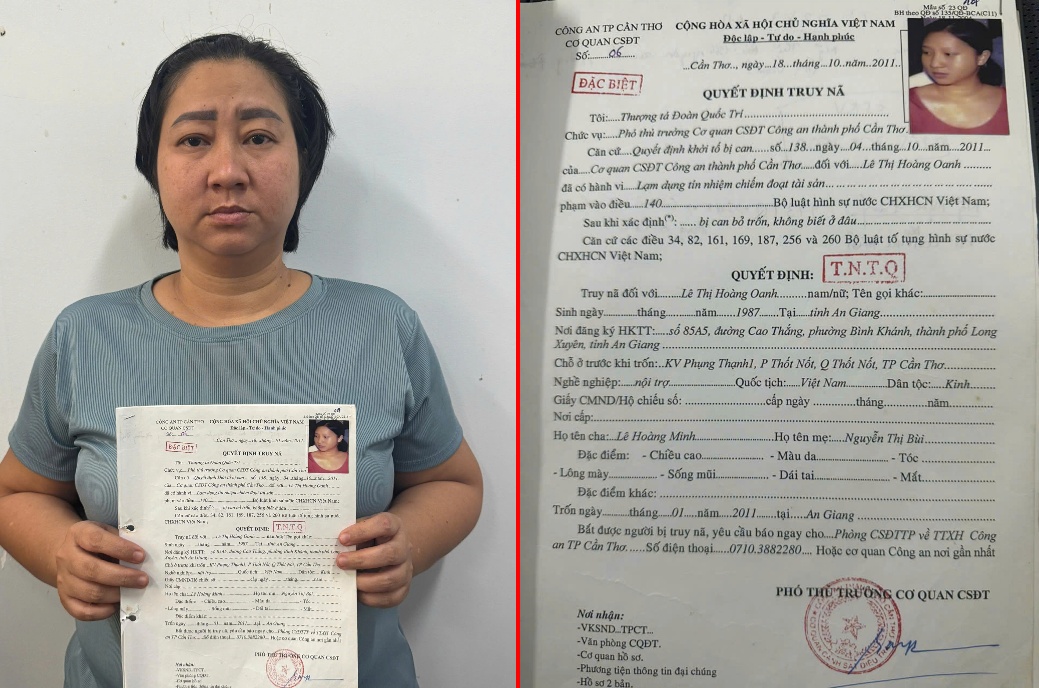 Mẫu số 23 QĐ
BH theo QĐ số 135/QĐ-BCA(C11)
CÔNG AN TP CẦN THƠ
CƠ QUAN CSĐT
Số:.......06......
CỘNG HÒA XÃ HỘI CHỦ NGHĨA VIỆT NAM
Độc lập - Tự do - Hạnh phúc
...Cần Thơ.., ngày...18...tháng...10..năm..2011..
ĐẶC BIỆT
QUYẾT ĐỊNH TRUY NÃ
Tôi:.....Thượng tá Đoàn Quốc Trí
Chức vụ:...Phó thủ trưởng Cơ quan CSĐT Công an thành phố Cần Thơ.
Căn cứ...Quyết định khởi tố bị can.....số..138..ngày....04...tháng...10...năm....2011...
của....Cơ quan CSĐT Công an thành phố Cần Thơ...đối với....Lê Thị Hoàng Oanh
đã có hành vi....Lạm dụng tín nhiệm chiếm đoạt tài sản...
phạm vào điều.....140.....Bộ luật hình sự nước CHXHCN Việt Nam;
Sau khi xác định(*): ...... bị can bỏ trốn, không biết ở đâu...
Căn cứ các điều 34, 82, 161, 169, 187, 256 và 260 Bộ luật tố tụng hình sự nước
CHXHCN Việt Nam;
QUYẾT ĐỊNH:
T.N.T.Q
Truy nã đối với....Lê Thị Hoàng Oanh.........nam/nữ; Tên gọi khác:...
Sinh ngày........tháng........năm....1987....Tại....tỉnh An Giang...
Nơi đăng ký HKTT:....số 85A5, đường Cao Thắng, phường Bình Khánh, thành phố Long
Xuyên, tỉnh An Giang ...
Chỗ ở trước khi trốn:..KV Phụng Thạnh1, P Thốt Nốt, Q Thốt Nốt, TP Cần Thơ...
Nghề nghiệp:....nội trợ.........Quốc tịch:.....Việt Nam.......Dân tộc:...Kinh...
Giấy CMND/Hộ chiếu số: ...cấp ngày ......tháng.......năm...
Nơi cấp:...
Họ tên cha:...Lê Hoàng Minh...Họ tên mẹ:....Nguyễn Thị Bùi
Đặc điểm: - Chiều cao... - Màu da... - Tóc ...
- Lông mày... - Sống mũi ... - Dái tai... - Mắt...
Đặc điểm khác: ...
Trốn ngày.......tháng....01....năm....2011....tại....An Giang...
Bắt được người bị truy nã, yêu cầu báo ngay cho....Phòng CSĐTTP về TTXH Công
an TP Cần Thơ.....Số điện thoại.....0710.3882280.... Hoặc cơ quan Công an nơi gần nhất
PHÓ THỦ TRƯỞNG CƠ QUAN CSĐT
Nơi nhận:
-VKSND..TPCT...
-Văn phòng CQĐT.
-Cơ quan hồ sơ.
-Phương tiện thông tin đại chúng
-Hồ sơ 2 bản.